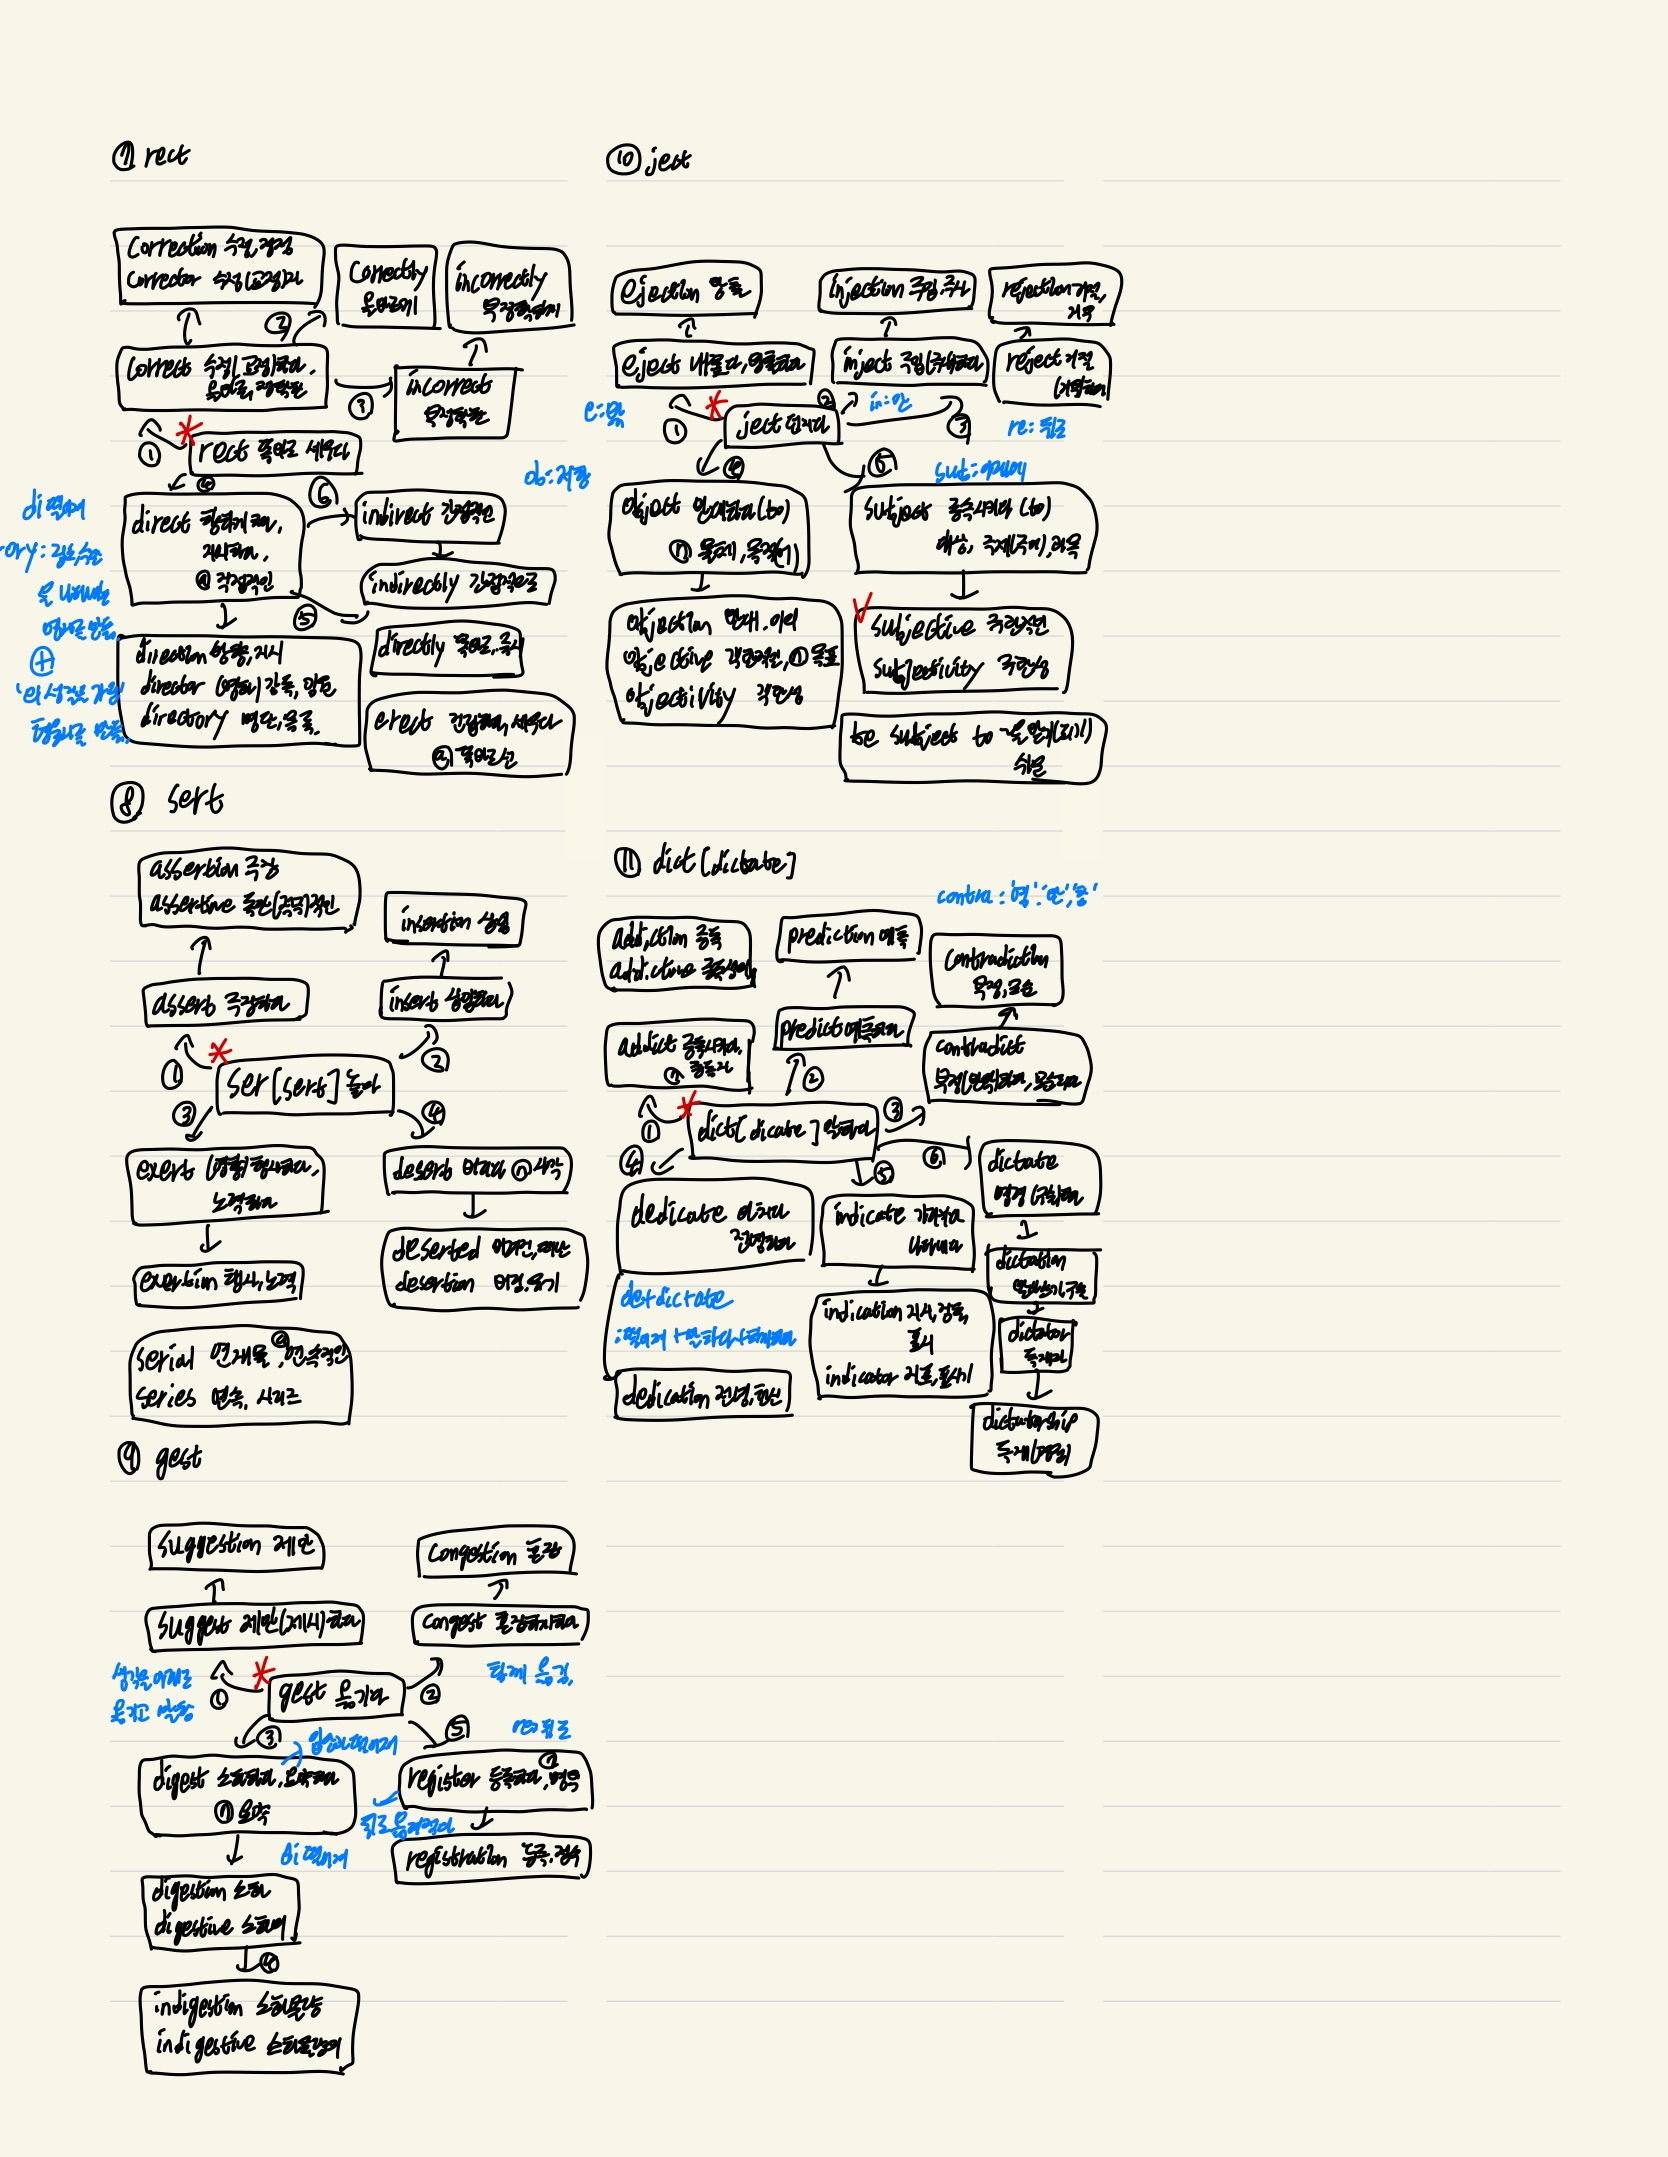 ⑦ rect
correction 수정, 정정
corrector 수정(교정)자
correctly
올바르게
incorrectly
부정확하게
correct 수정(교정)하다,
올바른, 정확한
②
③
incorrect
부정확한
①
rect 똑바로 세우다
④
⑥
di 떨어져
direct 향하게 하다,
지시하다,
ⓐ 직접적인
indirect 간접적인
indirectly 간접적으로
ory: 장소, 수단
을 나타내는
명사를 만듦,
⊕
'의 성질을 가진'
형용사를 만듦.
⑤
direction 방향, 지시
director (영화) 감독,
directory 명단, 목록.
directly 똑바로, 즉시
erect 건설하다, 세우다
ⓐ 똑바로 선
⑧ sert
assertion 주장
assertive 독단(적극)적인
insertion 삽입
assert 주장하다
insert 삽입하다
①
②
ser [sert] 놓다
③
④
exert (영향) 행사하다,
노력하다
desert 버리다 ⓝ 사막
exertion 행사, 노력
deserted 버려진, 떠난
desertion 버림, 유기
serial 연재물 ⓐ, 연속적인
series 연속, 시리즈
⑨ gest
suggestion 제안
congestion 혼잡
suggest 제안(제시)하다
congest 혼잡하게하다
생각을 아래로
옮기고 말함
①
gest 옮기다
②
함께 옮김,
③
입에서 떨어져
⑤
re: 뒤로
digest 소화하다, 요약하다
ⓝ 요약
register 등록하다, ⓝ 명부
뒤로 옮겨적다
di 떨어져
registration 등록, 접수
digestion 소화
digestive 소화의
④
indigestion 소화불량
indigestive 소화불량의
⑩ ject
ejection 방출
injection 주입, 주사
rejection 거절,
거부
eject 내쫓다, 방출하다
inject 주입(주사)하다
reject 거절
(거부)하다
e: 밖
①
ject 던지다
②
in: 안
③
re: 뒤로
④
⑤
ob: 저항
sub: 아래에
object 반대하다(to)
ⓝ 물체, 목적(어)
subject 종속시키다 (to)
대상, 주제(주어), 과목
objection 반대, 이의
objective 객관적인, ⓝ 목표
objectivity 객관성
subjective 주관적인
subjectivity 주관성
be subject to ~을 받게(되기)
쉬운
⑪ dict [dictate]
contra: '역', '반', '항'
addiction 중독
addictive 중독성의
prediction 예측
contradiction
부정, 모순
addict 중독시키다,
ⓝ 중독자
predict 예측하다
contradict
부정(반박)하다, 모순되다
①
②
dict [dicate] 말하다
③
④
⑤
⑥
dedicate 바치다
전념하다
indicate 가리키다
나타내다
dictate
명령 (구술)하다
dictation
받아쓰기, 구술
de+dictate
: 떨어져 + 말하다
indication 지시, 징후,
표시
indicator 지표, 표시기
dictator
독재자
dedication 전념, 헌신
dictatorship
독재(정권)